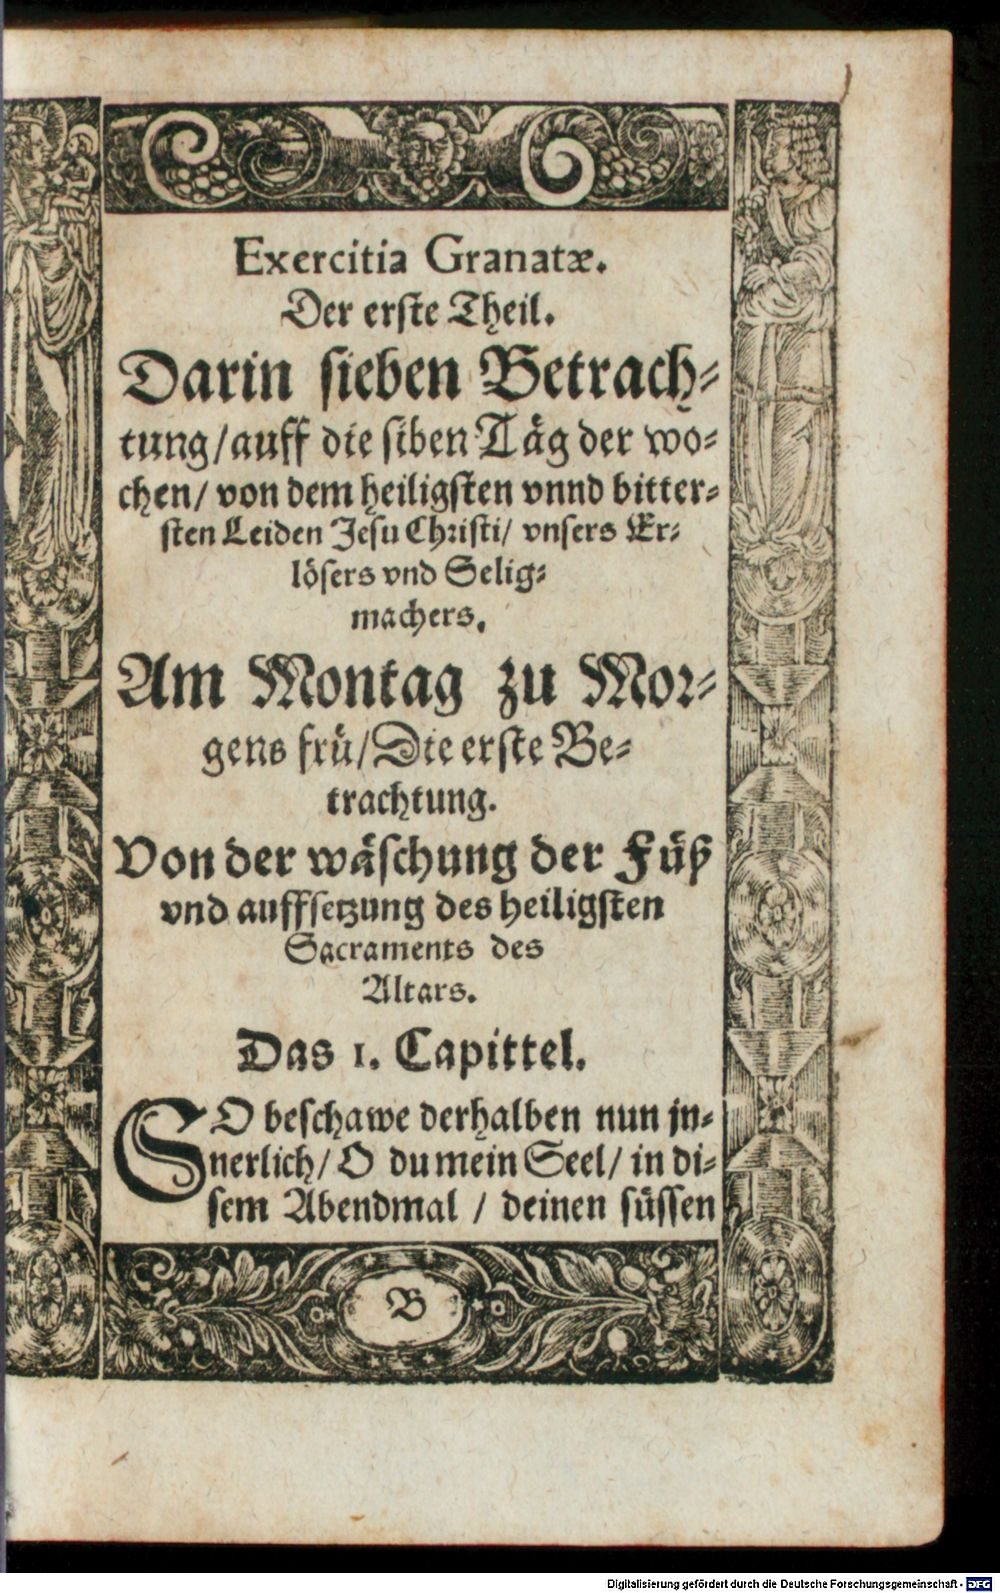 Exercitia Granatæ.
Der erſte Theil.
Darin ſieben Betrach⸗
tung/auff die ſiben Täg der wo⸗
chen/ von dem heiligſten vnnd bitter⸗
ſten Leiden Jeſu Chriſti/ vnſers Er⸗
löſers vnd Selig⸗
machers.
Am Montag zu Mor⸗
gens frü/Die erſte Be⸗
trachtung.
Von der wäſchung der Füß
vnd auffſetzung des heiligſten
Sacraments des
Altars.
Das 1. Capittel.
SO beſchawe derhalben nun jn⸗
nerlich/ O du mein Seel/ in di⸗
ſem Abendmal / deinen ſüſſen
B
Digitalisierung gefördert durch die Deutsche Forschungsgemeinschaft - DFG